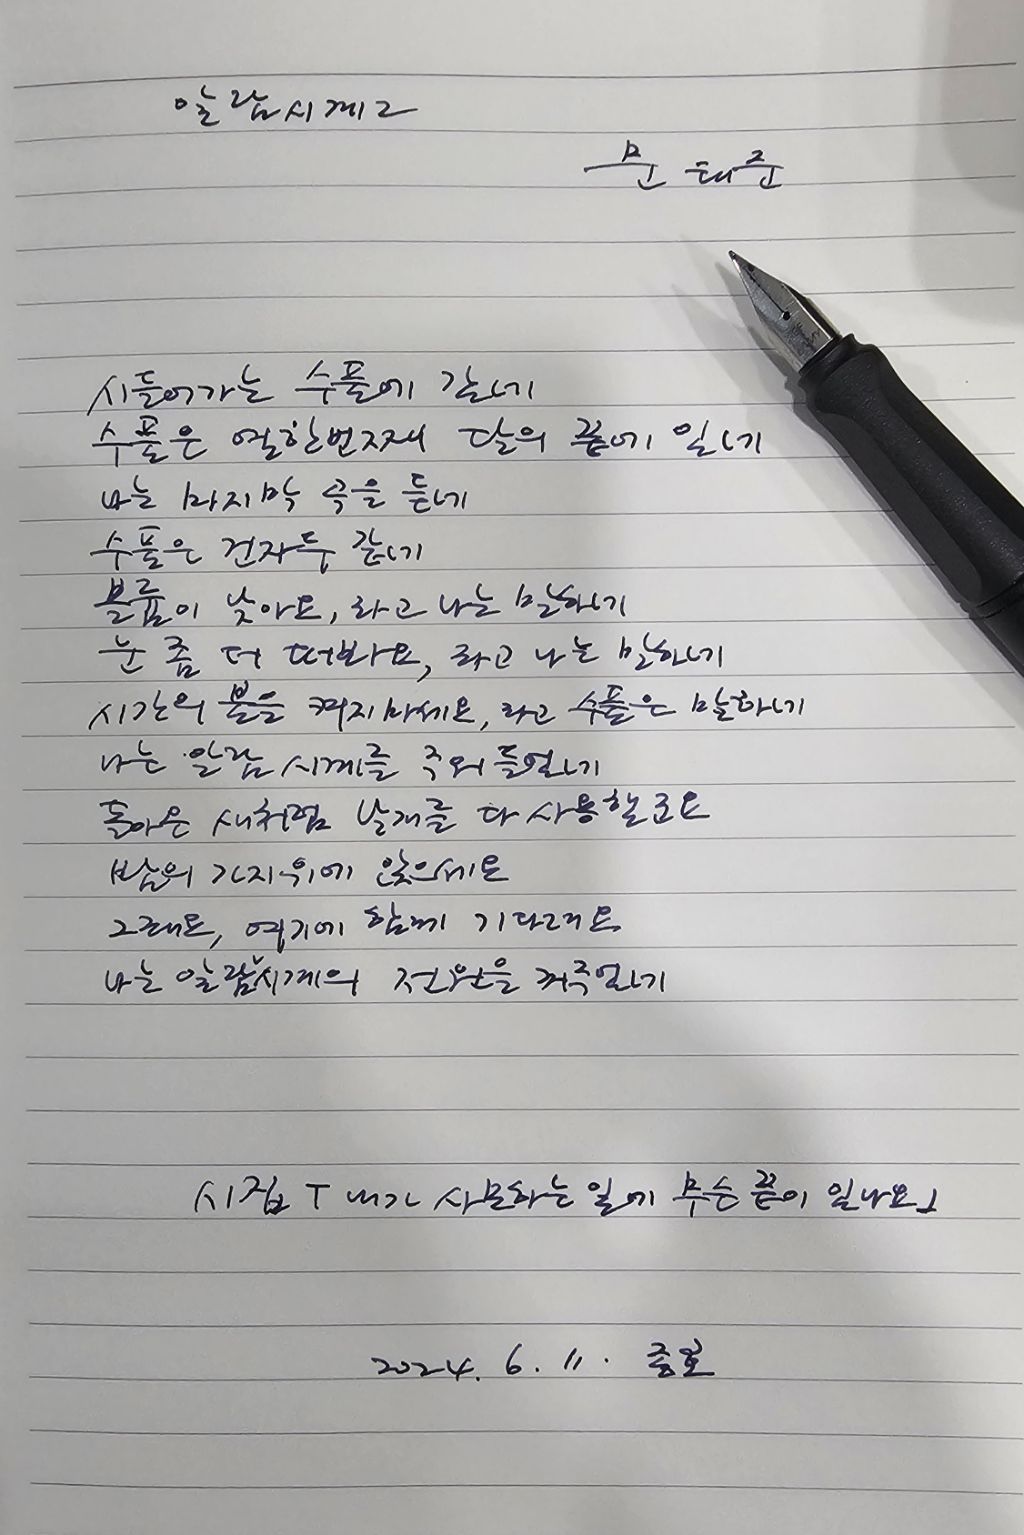 알람시계2
문태준
시들어가는 수풀에 갔네
수풀은 열한번째 달의 끝에 있네
나는 마지막 곡을 듣네
수풀은 건자두 같네
볼륨이 낮아요, 라고 나는 말하네
눈 좀 더 떠봐요, 라고 나는 말하네
시간의 불을 켜지마세요, 라고 수풀은 말하네
나는 알람 시계를 주워 들었네
돌아온 새처럼 날개를 다 사용할고요
밤의 가지위에 앉으세요
그래요, 여기에 함께 기다려요
나는 알람시계의 전원을 꺼주었네
시집 「내가 사모하는 일에 무슨 끝이 있나요」
2024. 6. 11.